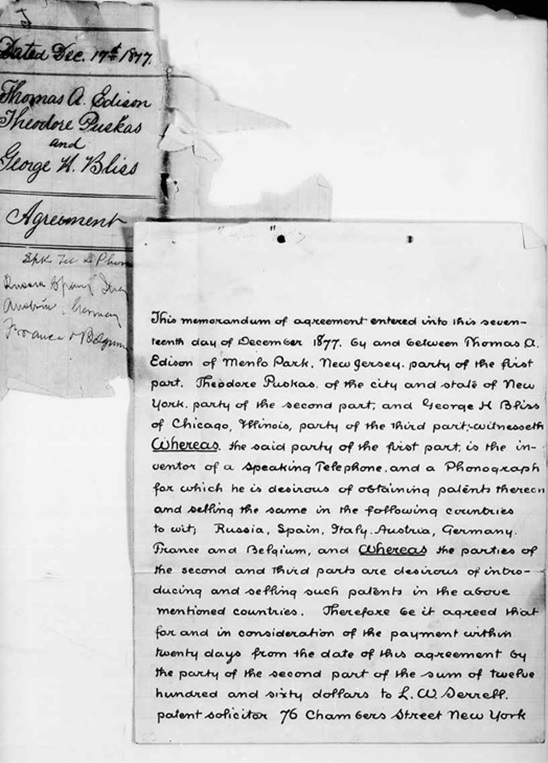 Dated Dec. 17th 1877.
Thomas A. Edison
Theodore Puskas
and
George H. Bliss
Agreement
Spk Tel & Phon
Russia Spain
Austria, Germany
France & Belgium
This memorandum of agreement entered into this seven-
teenth day of December 1877. by and between Thomas A.
Edison of Menlo Park, New Jersey. party of the first
part. Theodore Puskas. of the city and state of New
York. party of the second part, and George H Bliss
of Chicago, Illinois, party of the third part,-witnesseth
Whereas. the said party of the first part, is the in-
ventor of a Speaking Telephone, and a Phonograph
for which he is desirous of obtaining patents thereon
and selling the same in the following countries
to wit; Russia, Spain, Italy. Austria, Germany.
France and Belgium, and Whereas the parties of
the second and third parts are desirous of intro-
ducing and selling such patents in the above
mentioned countries. Therefore be it agreed that
for and in consideration of the payment within
twenty days from the date of this agreement by
the party of the second part of the sum of twelve
hundred and sixty dollars to L. W. Serrell.
patent solicitor 76 Chambers Street New York